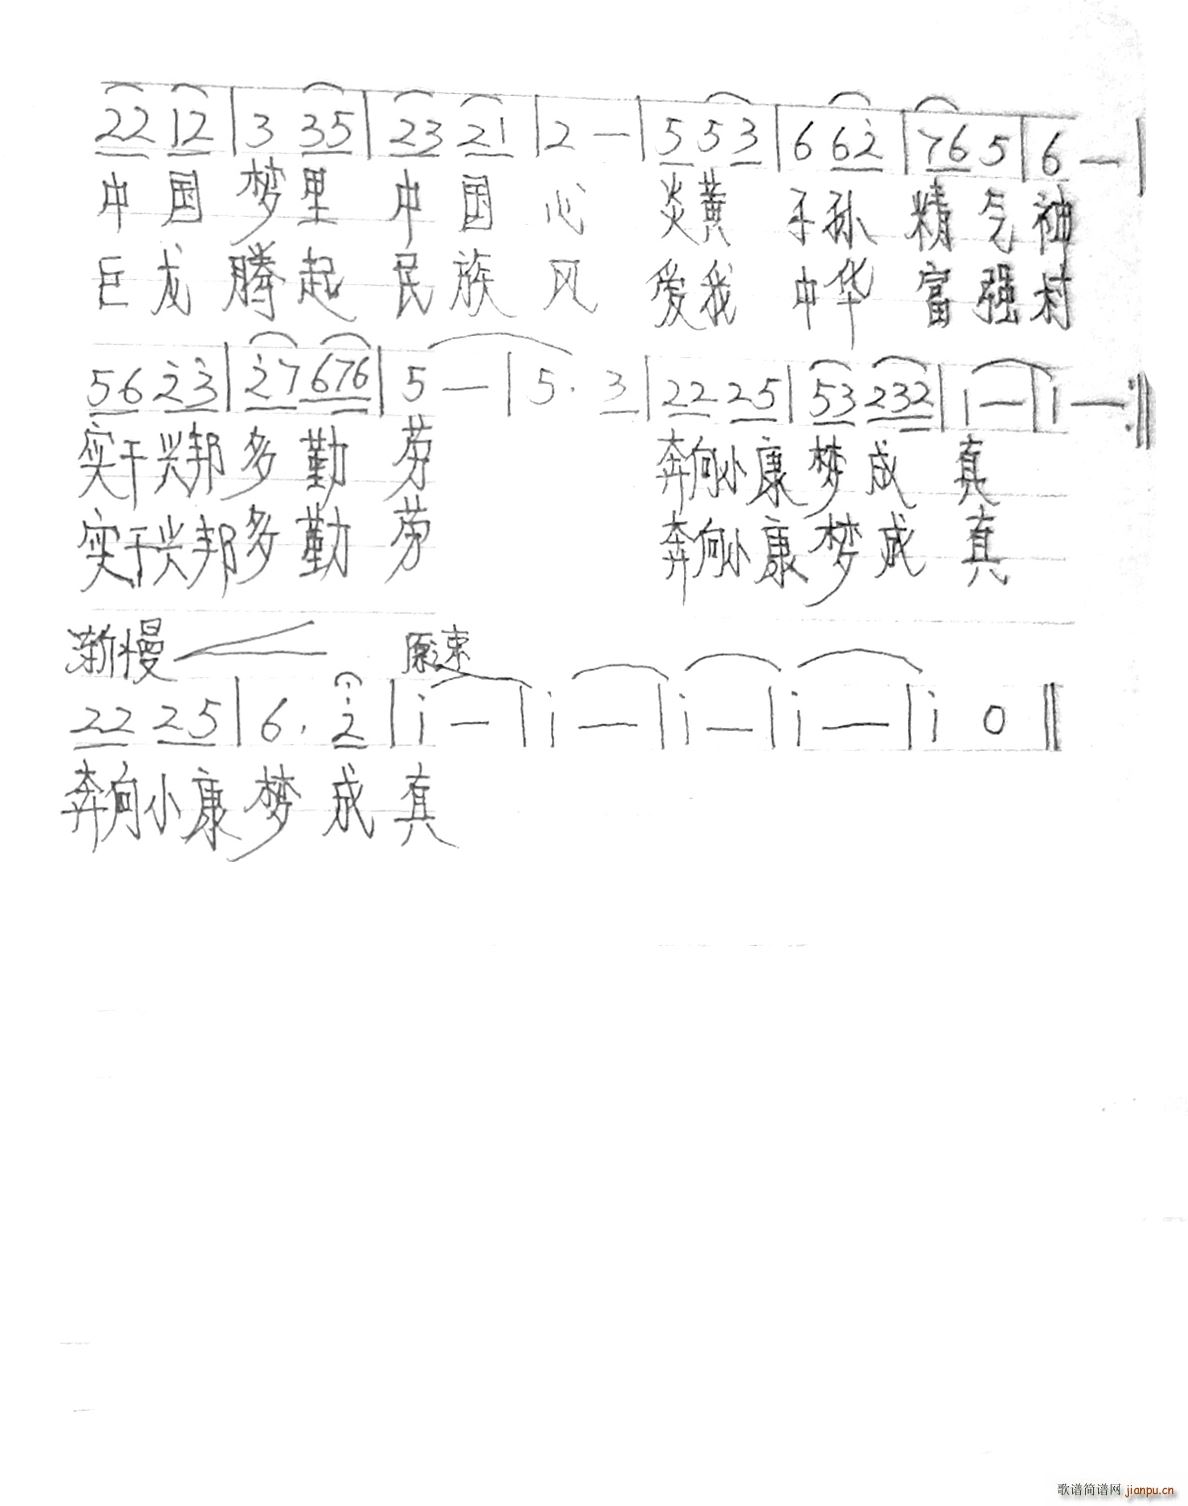 22 12 | 3 35 | 23 21 | 2 — | 5 53 | 6 62̇ | 76 5 | 6 — |
中 国 梦 里 中 国 心 炎黄 子孙 精 气 神
巨 龙 腾 起 民 族 风 爱我 中华 富 强 村
56 2̇3̇ | 2̇7 676 | 5 — | 5. 3 | 22 25 | 53 232 | i — | i — :‖
实干兴邦多 勤 劳 奔向小康梦 成 真
实干兴邦多 勤 劳 奔向小康梦 成 真
渐慢 原速
22 25 | 6. 2̇ | i — | i — | i — | i — | i 0 ‖
奔向小康梦 成 真
歌谱简谱网 jianpu.cn